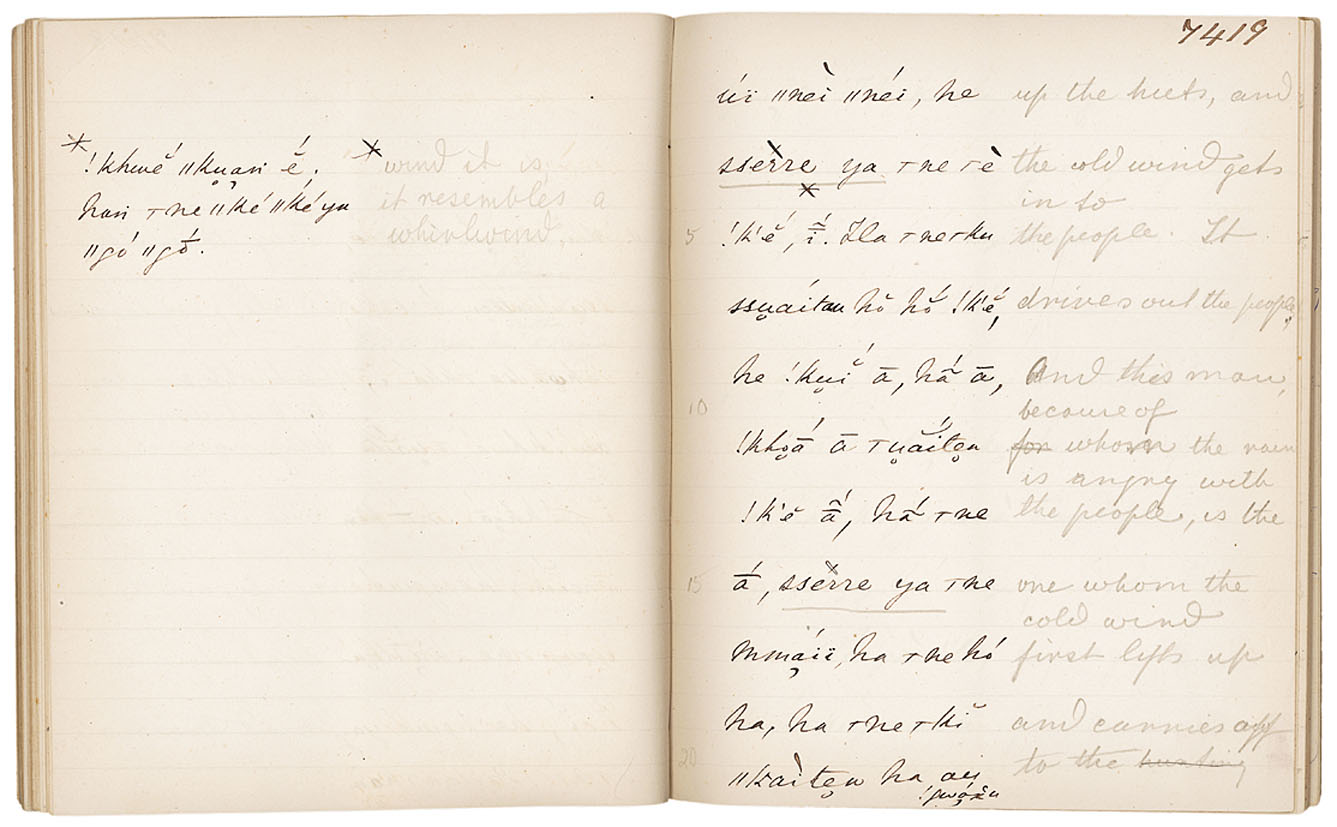 7419
*
!khwĕ́ ॥ku̯an ĕ́.
han ⊤ne ॥ké ॥ké ya
॥gó ॥gṓ.
* wind it is,
it resembles a
whirlwind,
úï ॥nèi ॥néi, he
up the huts, and
ssèrre ya ⊤ne ⊤è
the cold wind gets
*
in to
5
!k'ĕ́, ī́. Ha ⊤ne ⊤ku
the people. It
ssu̯áitau hŏ hŏ́ !k'ĕ́,
drives out the people,
he !ku̯ĭ́ ā, hā̆́ ā,
And this man,
10
because of
!kho̯ā́ ā ⊤u̯áite̯n
for whom the rain
is angry with
!k'ĕ ā́, hā̆́ ⊤ne
the people, is the
15
ā́, ssèrre ya ⊤ne
one whom the
cold wind
mma̯íï, ha ⊤ne hó
first lifts up
ha, ha ⊤ne ⊤kĭ
and carries off
20
॥kàite̯n ha au
to the hunting